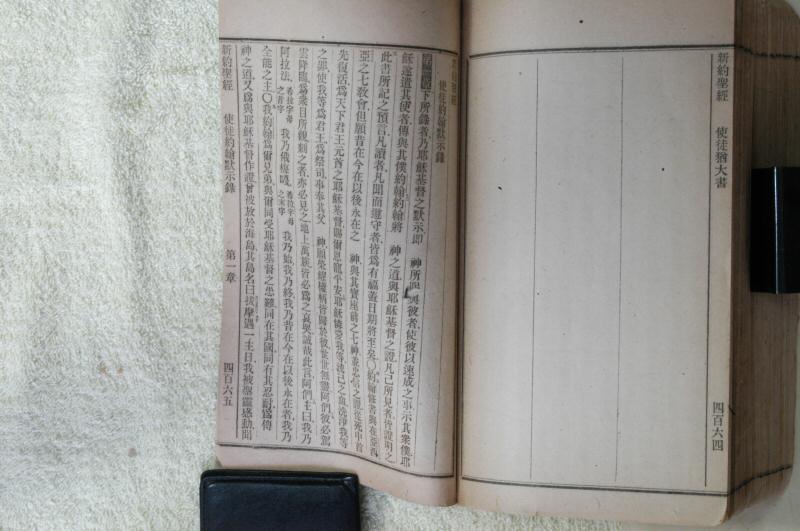 新約聖經 使徒猶大書 四百六四
新約聖經
使徒約翰默示錄
下所錄者乃耶穌基督之默示、即 神所 與彼者、使彼以速成之事、示其衆僕、耶
穌遂遣其使者、傳與其僕約翰、約翰將 神之道、與耶穌基督之證、凡己所見者、皆證明之、
此書所記之預言、凡讀者、凡聞而遵守者、皆爲有福、蓋日期將至矣、〇約翰修書與在亞西
亞之七敎會、但願昔在今在以後永在之 神、與其寶座前之七神、並忠信之證、從死中首
先復活、爲天下君王元首之耶穌基督、賜爾恩寵平安、耶穌愛我等、以己之血、洗淨我等
之罪、使我等爲君王、爲祭司、事奉其父 神、願榮耀權柄皆歸於彼、世世無盡、阿們、彼必駕
雲降臨、爲衆目所視、刺之者、亦必見之、地上萬族、皆必爲之哀哭、誠哉此言、阿們、主曰、我乃
阿拉法、希拉字母之首字 我乃俄梅戛、希拉字母之末字 我乃始、我乃終、我乃昔在今在以後永在者、我乃
全能之主、〇我約翰爲爾兄弟、與爾同受耶穌基督之患難、同在其國、同有其忍耐、爲傳
神之道、又爲與耶穌基督作證、曾被放於海島、其島名曰拔摩、遇一主日、我被聖靈感動、聞
新約聖經 使徒約翰默示錄 第一章 四百六五